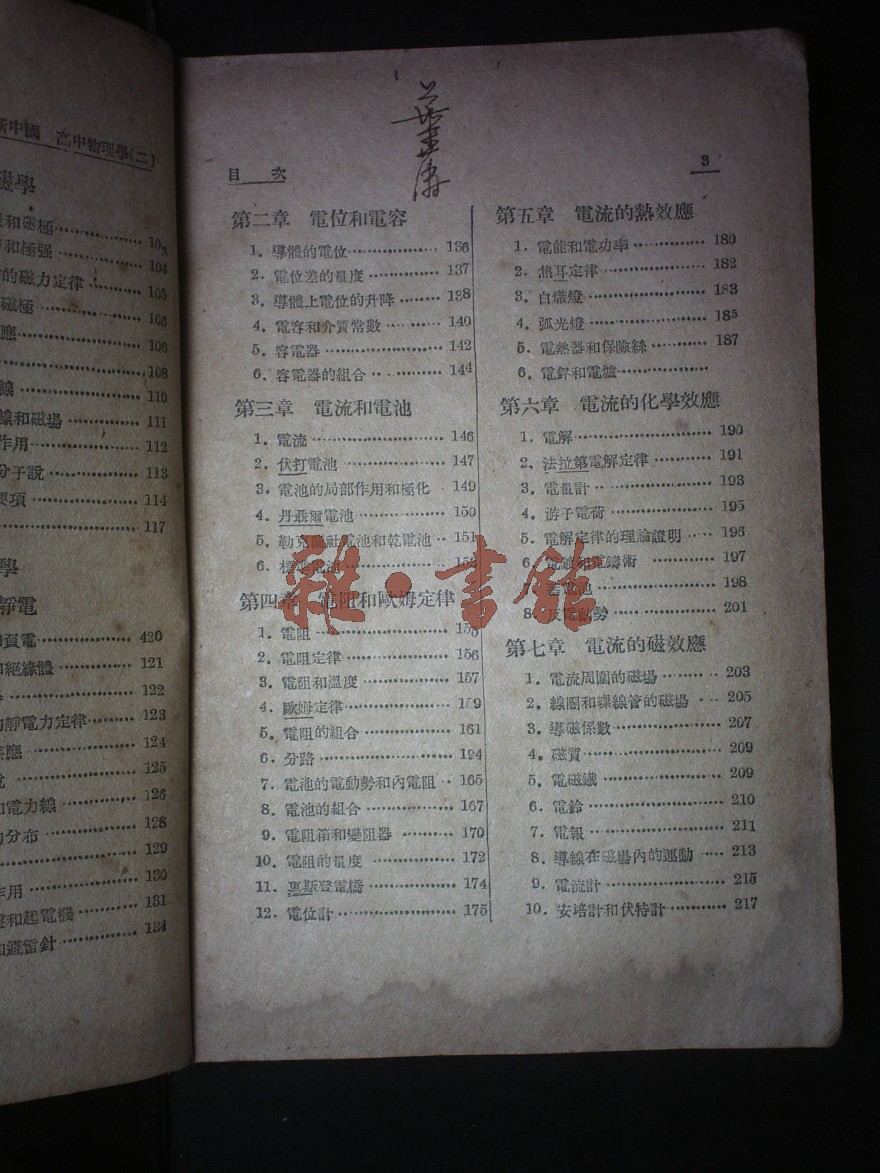 新中國 高中物理學(二)
磁學
和磁極 103
和極强 104
的磁力定律 105
磁極 106
應 106
108
線 110
線和磁場 111
作用 112
分子説 113
要項 114
117
學
靜電
和負電 420
和絕緣體 121
122
的靜電力定律 123
應 124
125
和電力線 126
的分布 128
129
作用 130
和起電機 131
和避雷針 134
目 次
3
第二章 電位和電容
1. 導體的電位 136
2. 電位差的量度 137
3. 導體上電位的升降 138
4. 電容和介質常數 140
5. 容電器 142
6. 容電器的組合 144
第三章 電流和電池
1. 電流 146
2. 伏打電池 147
3. 電池的局部作用和極化 149
4. 丹聶爾電池 150
5. 勒克蘭社電池和乾電池 151
6. 標準電池
第四章 電阻和歐姆定律
1. 電阻 155
2. 電阻定律 156
3. 電阻和溫度 157
4. 歐姆定律 159
5. 電阻的組合 161
6. 分路 194
7. 電池的電動勢和內電阻 165
8. 電池的組合 167
9. 電阻箱和變阻器 170
10. 電阻的量度 172
11. 惠斯登電橋 174
12. 電位計 175
第五章 電流的熱效應
1. 電能和電功率 180
2. 焦耳定律 182
3. 白熾燈 183
4. 弧光燈 185
5. 電熱器和保險絲 187
6. 電銲和電爐
第六章 電流的化學效應
1. 電解 190
2. 法拉第電解定律 191
3. 電量計 193
4. 游子電荷 195
5. 電解定律的理論證明 196
6. 電鍍和電鑄術 197
7. 蓄電池 198
8. 反電動勢 201
第七章 電流的磁效應
1. 電流周圍的磁場 203
2. 線圈和螺線管的磁場 205
3. 導磁係數 207
4. 磁質 209
5. 電磁鐵 209
6. 電鈴 210
7. 電報 211
8. 導線在磁場內的運動 213
9. 電流計 215
10. 安培計和伏特計 217
雜·書館